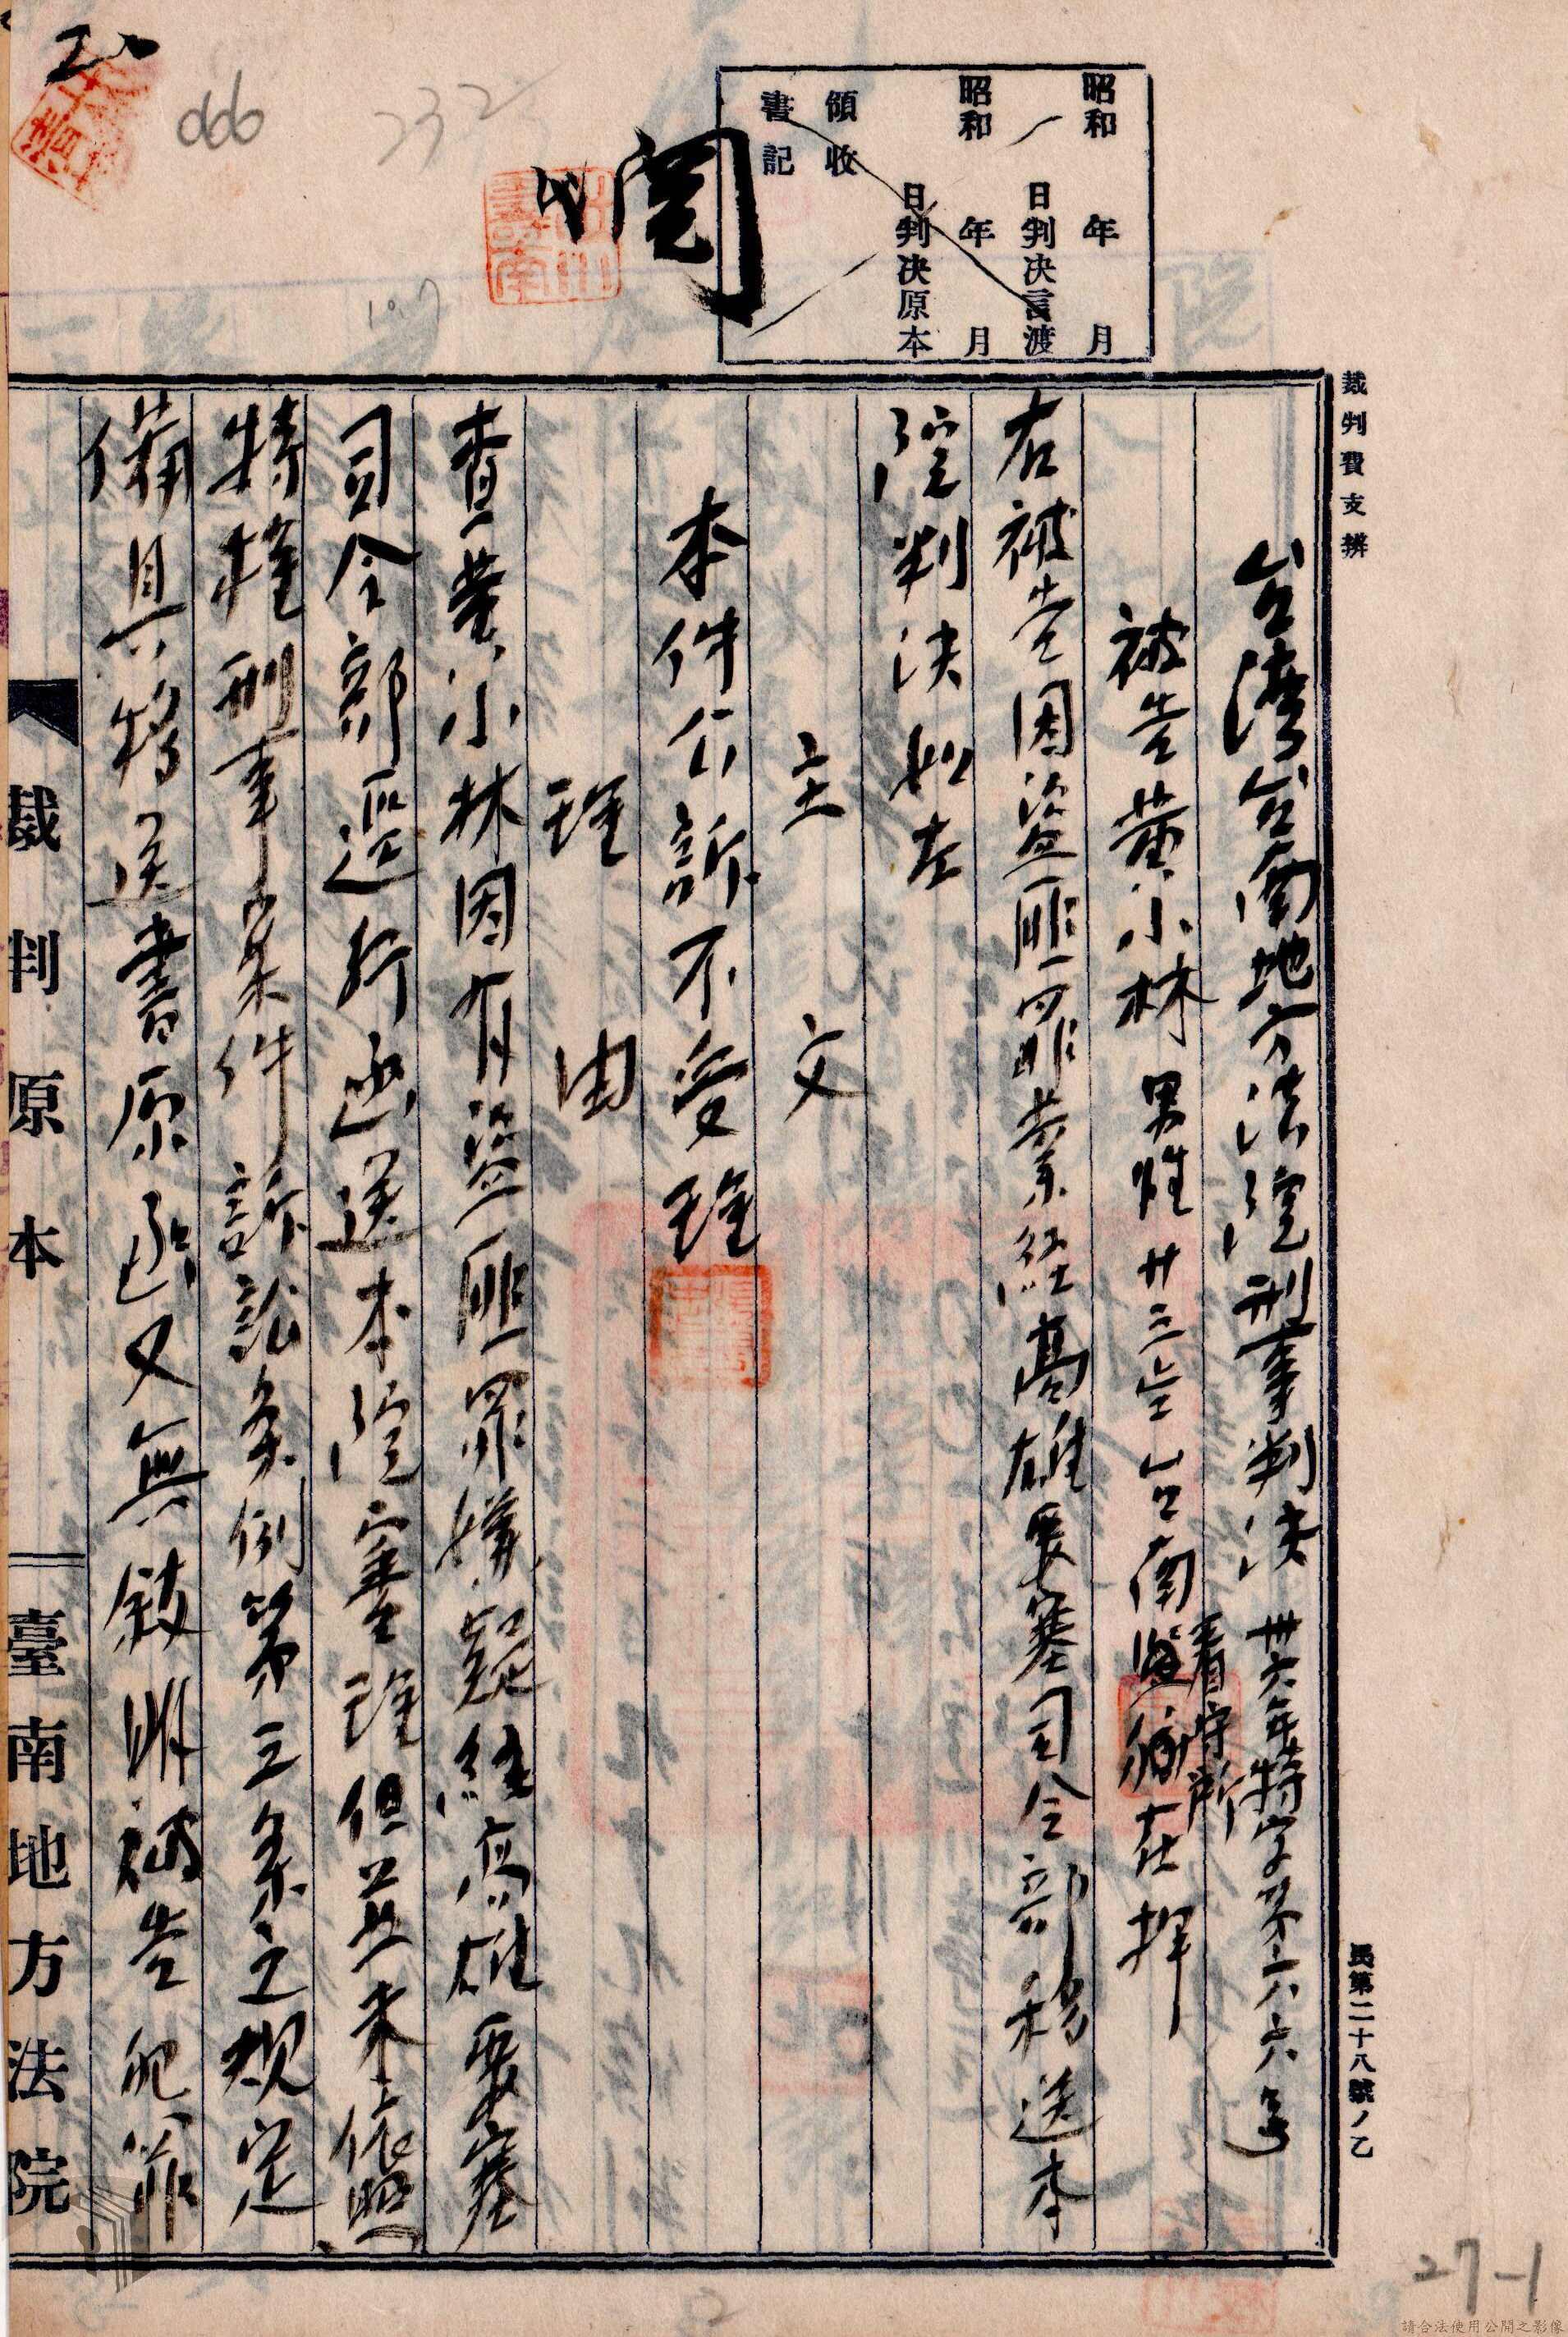 裁判費支辨
民第二十八號ノ乙
昭和 年 月
日判決言渡
昭和 年 月
日判決原本
領收
書記
閲
066
232
台灣台南地方法院刑事判決 卅六年特字第六六号
被告黄小林 男性 廿三岁 台南
看守所
在押
右被告因盗匪罪業経高雄要塞司令部移送本
院判决如左
主文
本件公訴不受理
理由
查黄小林因有盗匪罪嫌疑経高雄要塞
司令部逕行函送本院審理但並未依照
特種刑事案件訴訟条例第三条之規定
備具移送書原函又無敍明被告犯罪
裁判原本
臺南地方法院
27-1
請合法使用公開之影像